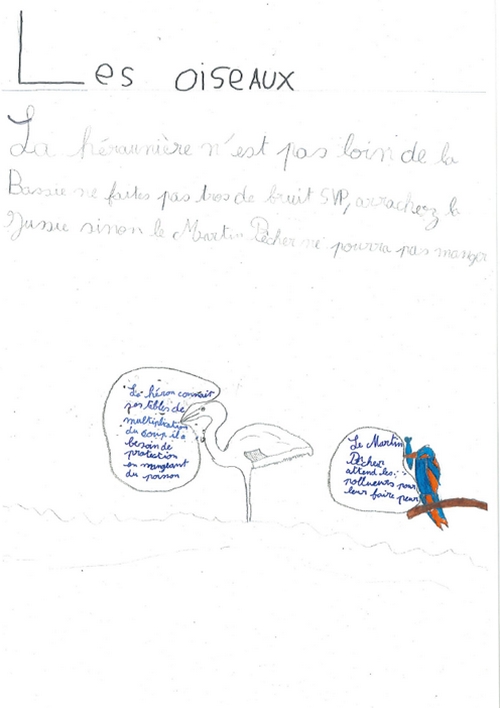 Les oiseaux
La hérannière n'est pas loin de la
Bassie ne faites pas tros de bruit SVP, arracherz la
Jussie sinon le Martin Pêcher ne pourra pas manger
Le héron connait
pas tables de
multiplication
du coup il a
besoin de
protection
en mangeant
du poison
Le Martin
Pêcher
attend les
pollueurs pour
leur faire peur